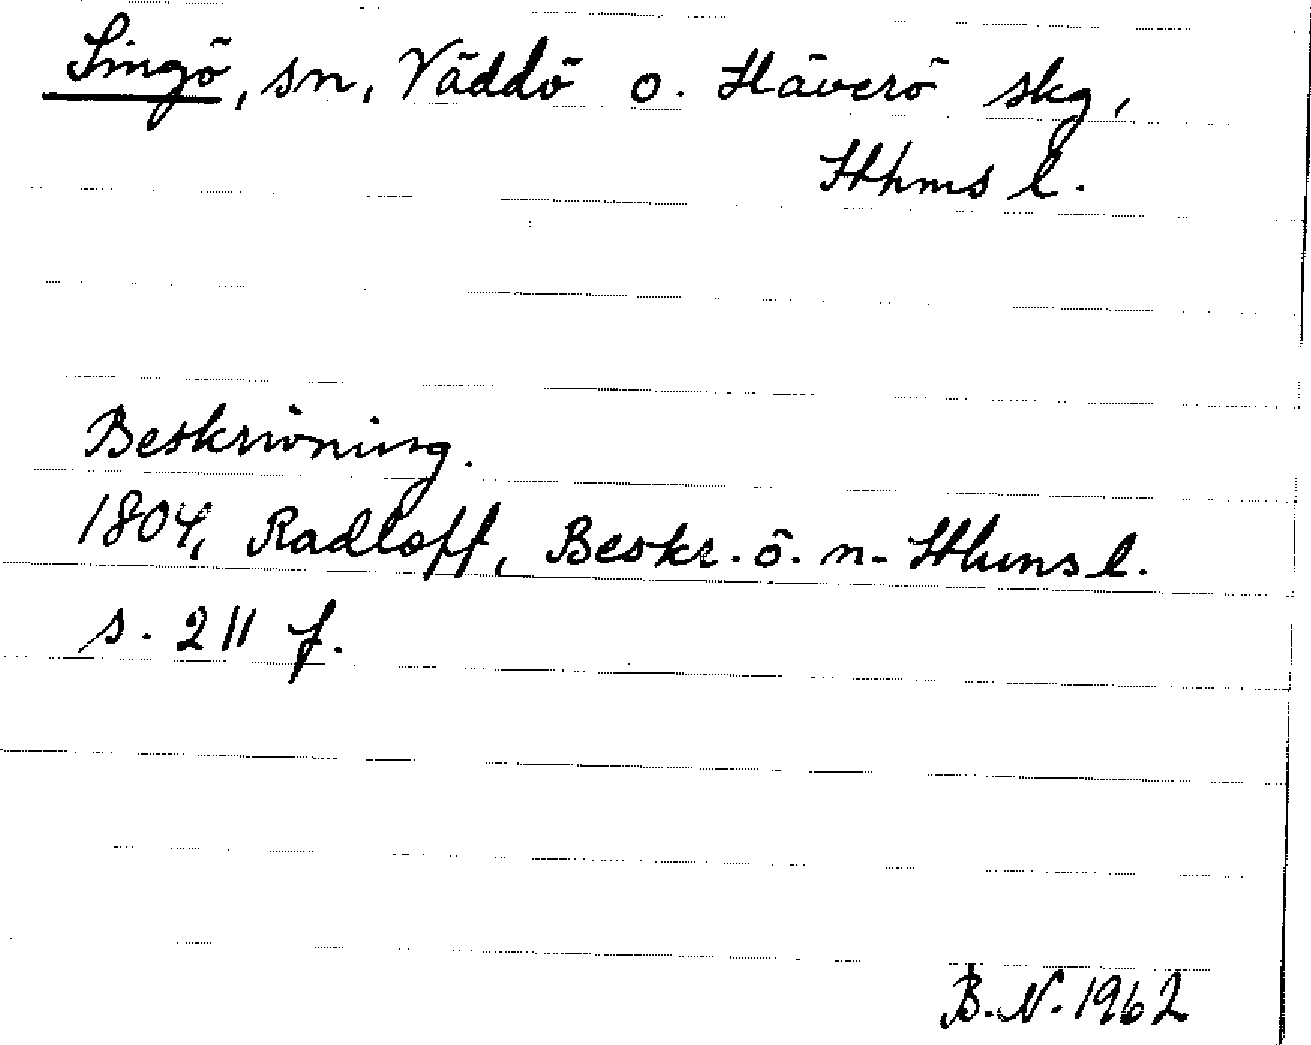 Singö, sn, Väddö o. Häverö skg,
Sthms l.
Beskrivning.
1804, Radloff, Beskr. ö. n. Sthms l.
s. 211 f.
B.N. 1962